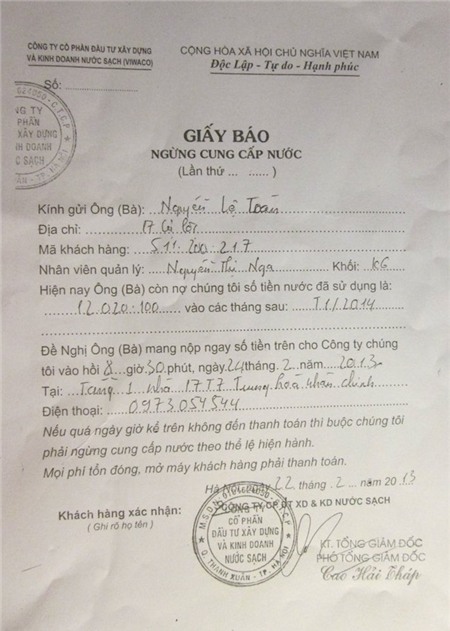 CÔNG TY CỔ PHẦN ĐẦU TƯ XÂY DỰNG
VÀ KINH DOANH NƯỚC SẠCH (VIWACO)
CỘNG HÒA XÃ HỘI CHỦ NGHĨA VIỆT NAM
Độc Lập - Tự do - Hạnh phúc
Số:
GIẤY BÁO
NGỪNG CUNG CẤP NƯỚC
(Lần thứ ... ...... )
Kính gửi Ông (Bà): Nguyễn Toán
Địa chỉ: 17
Mã khách hàng: 511.200.217
Nhân viên quản lý: Nguyễn Thị Nga Khối: KG
Hiện nay Ông (Bà) còn nợ chúng tôi số tiền nước đã sử dụng là:
12.020.100 vào các tháng sau: T1/2014
Đề Nghị Ông (Bà) mang nộp ngay số tiền trên cho Công ty chúng
tôi vào hồi 8 giờ 30 phút, ngày 24 tháng 2 năm 2013
Tại: Tầng 1 nhà 17T7 Trung hoà nhân chính
Điện thoại: 0973054544
Nếu quá ngày giờ kể trên không đến thanh toán thì buộc chúng tôi
phải ngừng cung cấp nước theo thể lệ hiện hành.
Mọi phí tổn đóng, mở máy khách hàng phải thanh toán.
Hà Nội, ngày 22 tháng 2 năm 2013
CÔNG TY CP ĐT XD & KD NƯỚC SẠCH
Khách hàng xác nhận:
( Ghi rõ họ tên )
CÔNG TY
CỔ PHẦN
ĐẦU TƯ XÂY DỰNG
VÀ KINH DOANH
NƯỚC SẠCH
Q. THANH XUÂN - TP. HÀ NỘI
KT. TỔNG GIÁM ĐỐC
PHÓ TỔNG GIÁM ĐỐC
Cao Hải Tháp